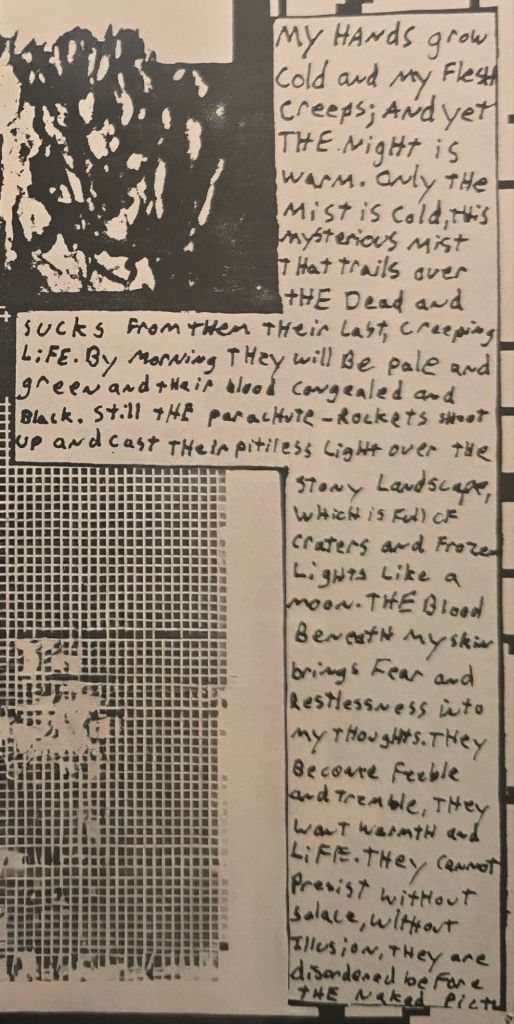 MY HANDS grow
Cold and My Flesh
Creeps; ANd yet
THE Night is
warm. Only THE
Mist is Cold, THis
mysterious Mist
THat trails over
tHE Dead and
sucks From tHEM THeir Last, Creeping
LiFE. By Morning THEy will Be pale and
green and their blood congealed and
Black. Still THE parachute-Rockets shoot
up and cast THeir pitiless Light over THe
Stony Landscape,
Which is Full oF
Craters and Frozen
Lights Like a
moon. THE Blood
Beneath My skin
brings Fear and
Restlessness into
My THoughts. THEy
Become Feeble
and Tremble, THEy
Want Warmth and
LiFE. THEy Cannot
Presist Without
Solace, Without
Illusion, THEy are
disordered beFore
THE Naked Pictu